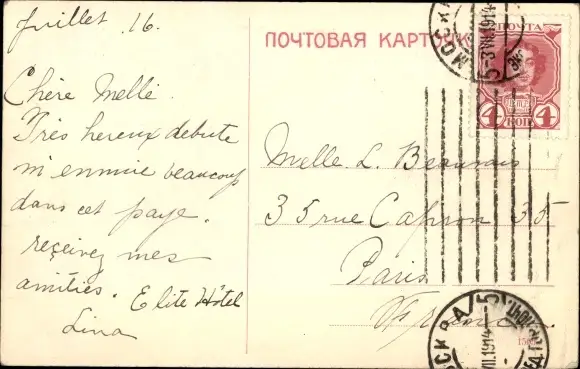 Juillet 16.
Chère Melle.
Très hereux debute
m'ennuie beaucoup
dans cet paye.
reçeivez mes
amitiés. Elite Hôtel
Lina
ПОЧТОВАЯ КАРТОЧКА
МОСКВА
5-3 VII.1914
ПОЧТА
4 КОП 4
Melle L. Beauvais
35 rue Capron 35
Paris
France
МОСКВА
VII.1914-5